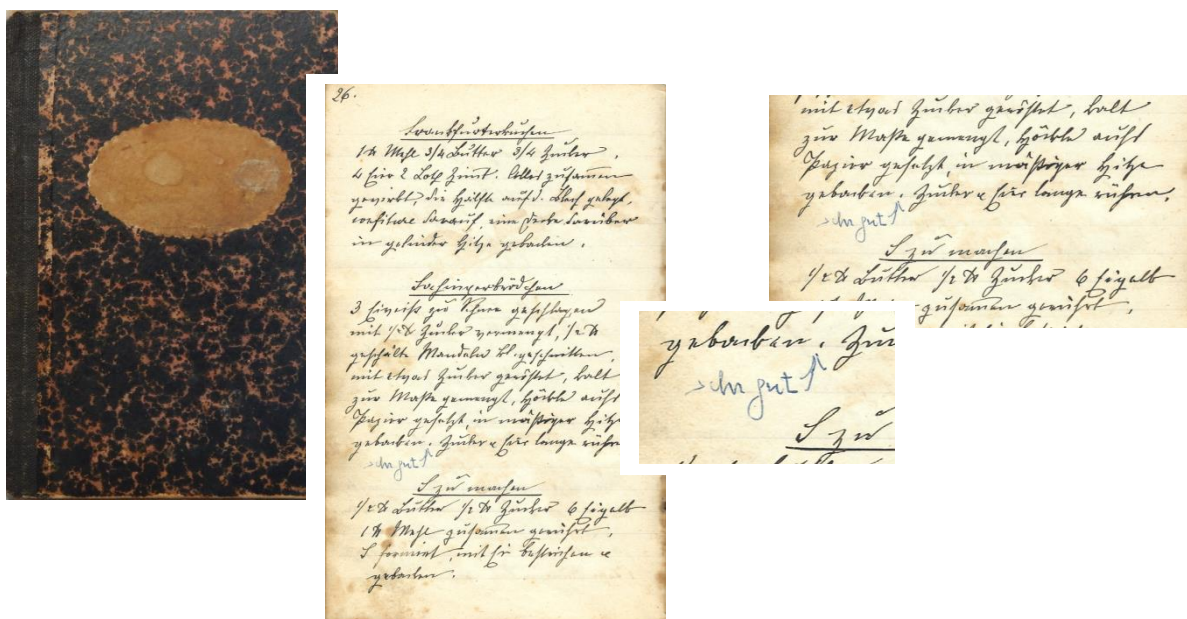 26.
Frankfurterkuchen
1 ℔ Mehl 3/4 Butter 3/4 Zucker,
4 Eier 2 Loth Zimt. Alles zusammen
gewirkt, die Hälfte auf d. Blech gelegt,
Confiture darauf, eine Decke darüber
in gelinder Hitze gebacken.
3 Eiweiß zu Schnee geschlagen
mit 1/2 ℔ Zucker vermengt, 1/2 ℔
geschälte Mandeln geschnitten,
mit etwas Zucker geröstet, kalt
zur Masse gemengt, aufs
Papier gesetzt, in mäßiger Hitze
gebacken. Zucker u Eier lange rühren.
sehr gut!
S zu machen
1/2 ℔ Butter 1/2 ℔ Zucker 6 Eigelb
1 ℔ Mehl zusammen gerührt,
S formiert, mit Ei bestrichen u
gebacken.
mit etwas Zucker geröstet, kalt
zur Masse gemengt, aufs
Papier gesetzt, in mäßiger Hitze
gebacken. Zucker u Eier lange rühren.
sehr gut!
S zu machen
1/2 ℔ Butter 1/2 ℔ Zucker 6 Eigelb
zusamen gerührt,
gebacken. Zu
sehr gut!
S zu